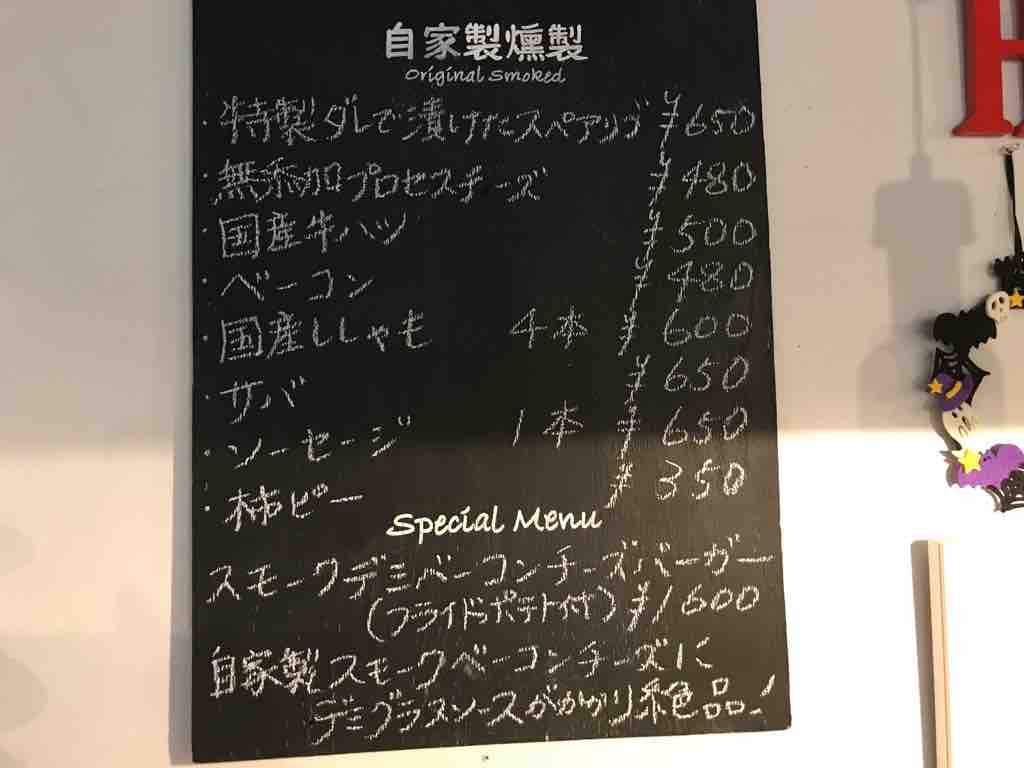 自家製燻製
Original Smoked
・特製ダレで漬けたスペアリブ ¥650
・無添加プロセスチーズ ¥480
・国産牛ハツ ¥500
・ベーコン ¥480
・国産ししゃも 4本 ¥600
・サバ ¥650
・ソーセージ 1本 ¥650
・柿ピー ¥350
Special Menu
スモークデミベーコンチーズバーガー
(フライドポテト付) ¥1600
自家製スモークベーコンチーズに
デミグラスソースがかかり絶品!